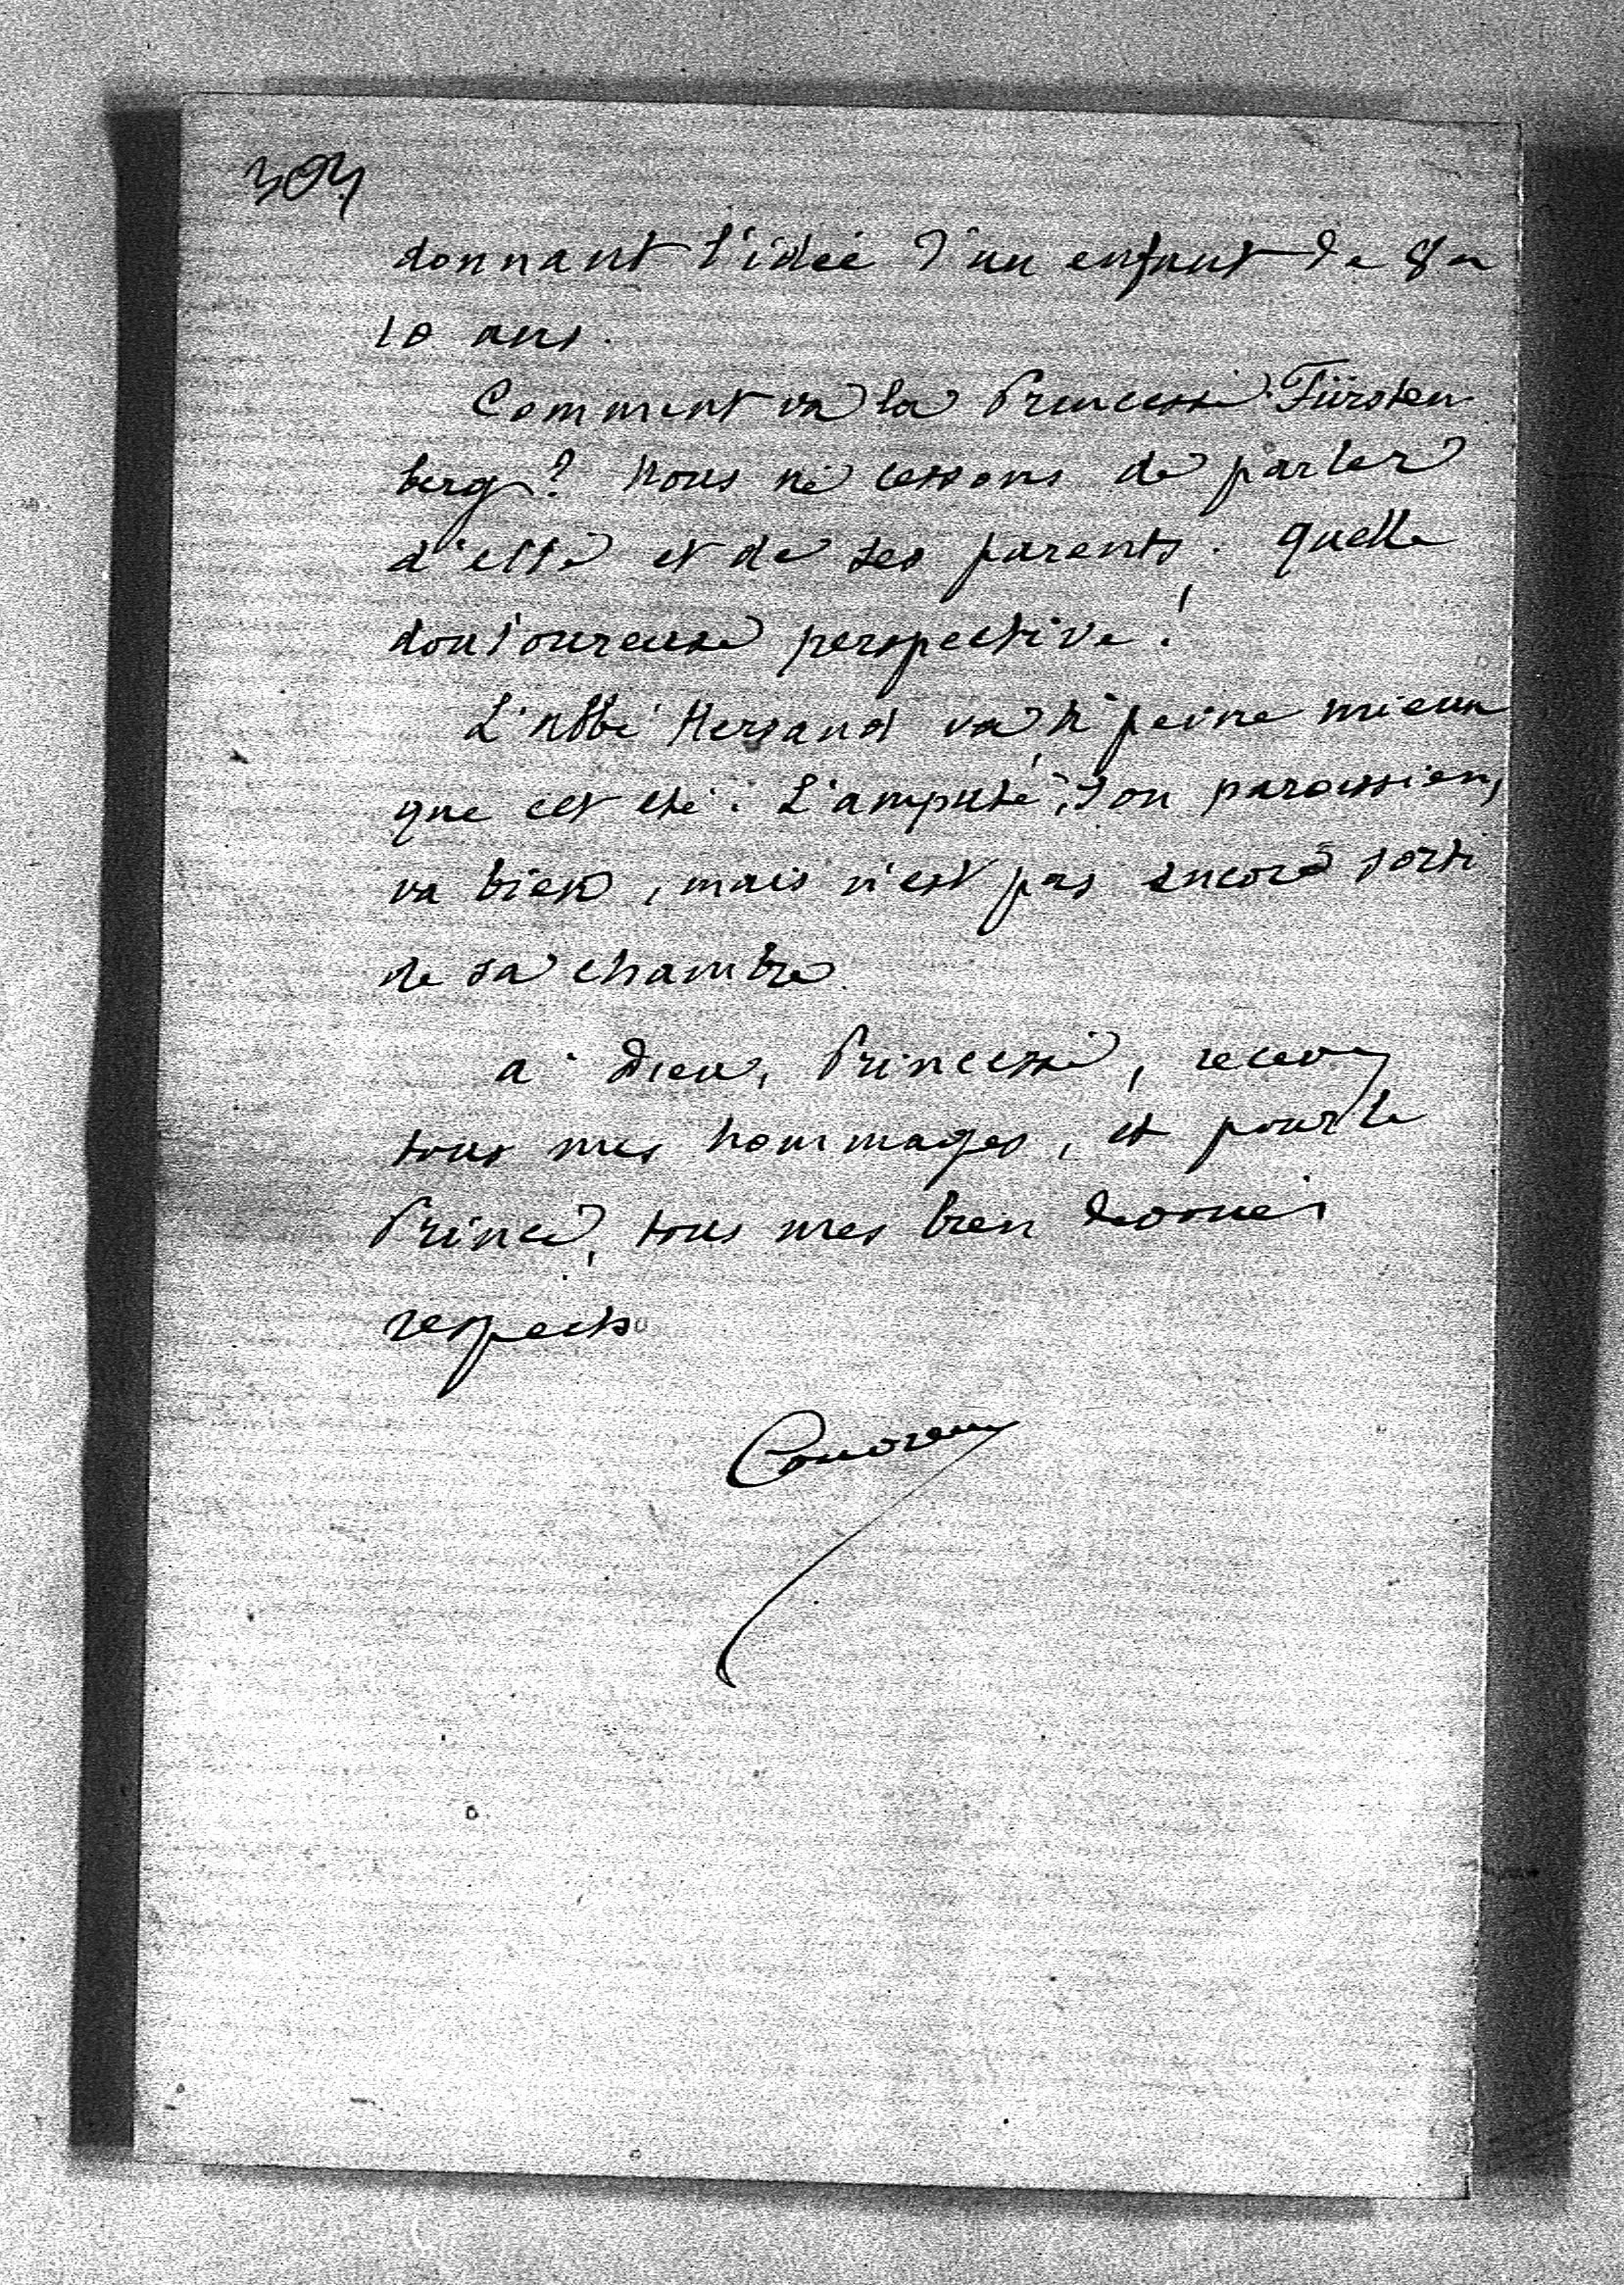 304
donnant l'idée d'un enfant de 8 a
10 ans.
Comment va la Princesse Fürsten
berg? Nous ne cessons de parler
d'elle et de ses parents. Quelle
douloureuse perspective!
L'abbé Hersand va à peine mieux
que cet été. L'amputé, son paroissien,
va bien, mais n'est pas encore sorti
de sa chambre.
à Dieu, Princesse, recevez
tous mes hommages, et pour le
Prince, tous mes bien dévoués
respects
Couvreux